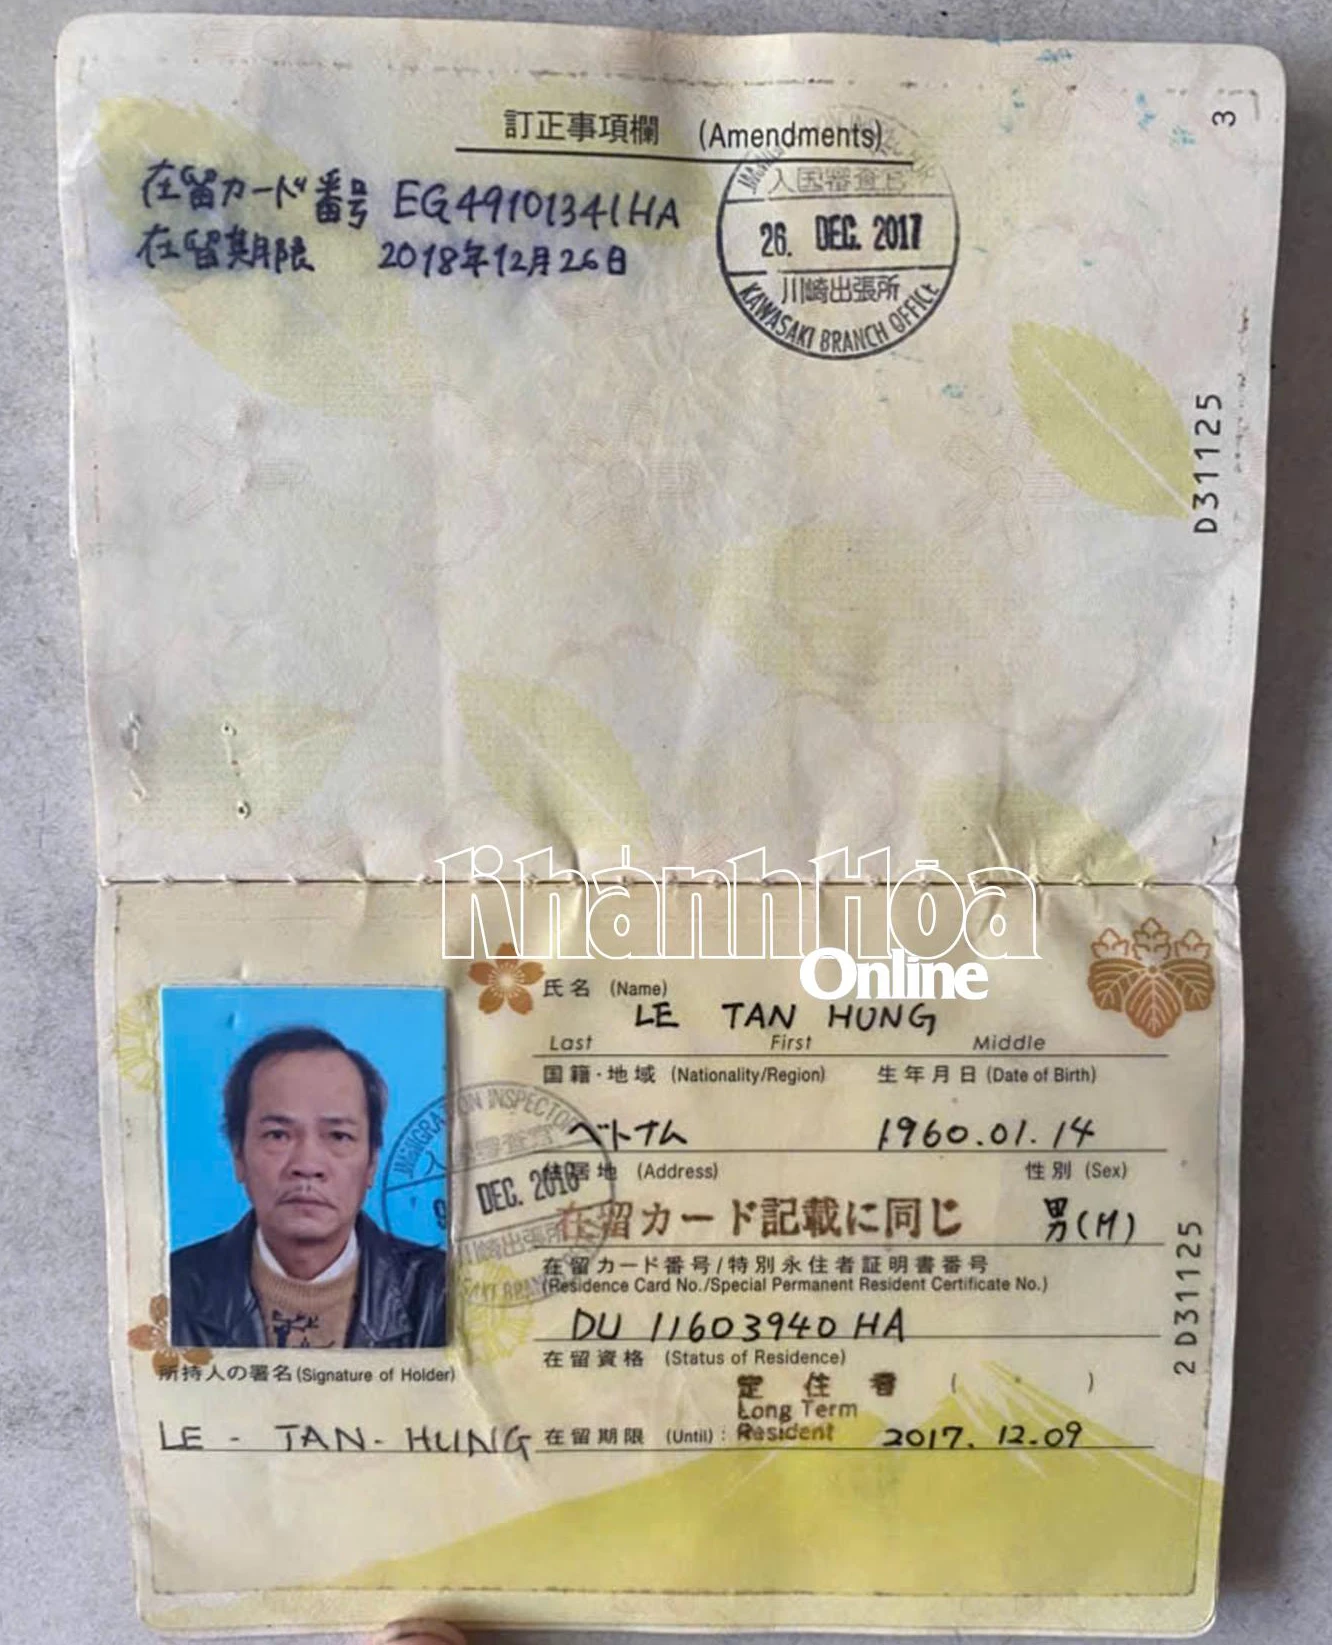 訂正事項欄 (Amendments)
3
在留カード番号 EG49101341HA
在留期限 2018年12月26日
入国審査官
26. DEC. 2017
川崎出張所
KAWASAKI BRANCH OFFICE
D31125
KhánhHòa
Online
氏名 (Name)
LE TAN HUNG
Last First Middle
国籍・地域 (Nationality/Region) 生年月日 (Date of Birth)
ベトナム 1960.01.14
住居地 (Address) 性別 (Sex)
在留カード記載に同じ 男(M)
在留カード番号/特別永住者証明書番号
(Residence Card No./Special Permanent Resident Certificate No.)
DU 11603940 HA
在留資格 (Status of Residence)
定住者 ( )
Long Term
Resident
在留期限 (Until) : 2017. 12.09
IMMIGRATION INSPECTOR
入国審査官
9 DEC. 2016
川崎出張所
所持人の署名 (Signature of Holder)
LE - TAN - HUNG
2 D31125